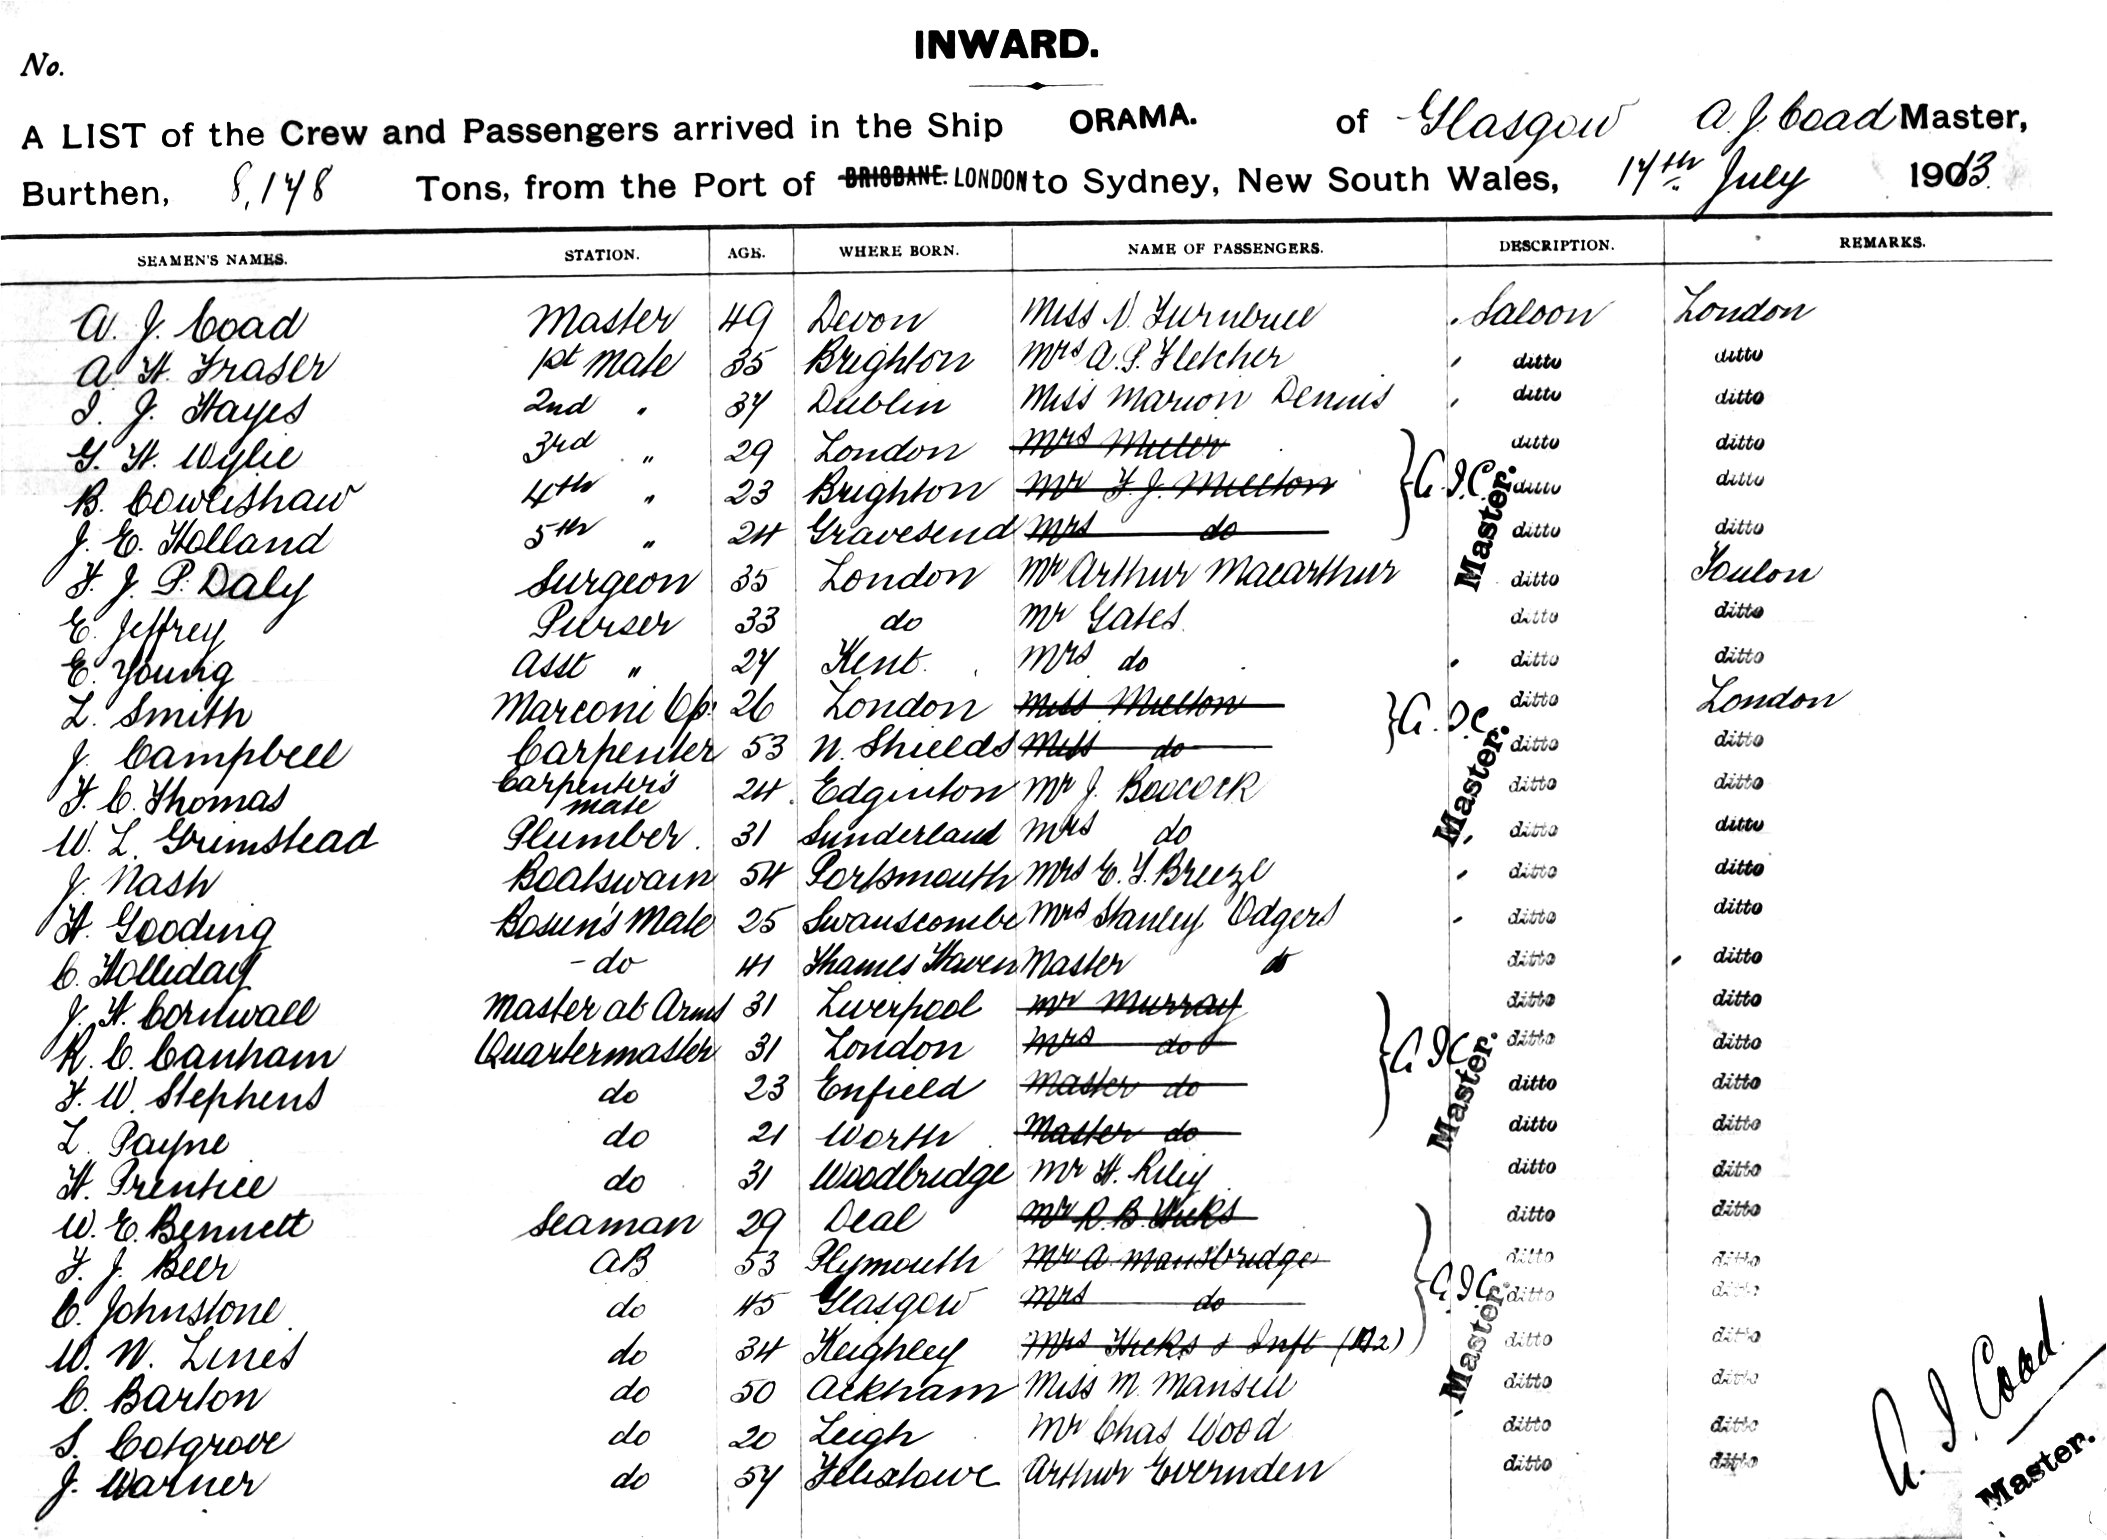 INWARD.
No.
A LIST of the Crew and Passengers arrived in the Ship ORAMA. of Glasgow A. J. Coad Master,
Burthen, 8,178 Tons, from the Port of BRISBANE. LONDON to Sydney, New South Wales, 17th July 1913.
SEAMEN'S NAMES. STATION. AGE. WHERE BORN. NAME OF PASSENGERS. DESCRIPTION. REMARKS.
A. J. Coad Master 49 Devon Miss N. Turnbull Saloon London
A. H. Fraser 1st Mate 35 Brighton Mrs A. P. Fletcher ditto ditto
J. J. Hayes 2nd " 37 Dublin Miss Marion Dennis ditto ditto
G. H. Wylie 3rd " 29 London Mrs Miller ditto ditto
B. Cowlishaw 4th " 23 Brighton Mr F. J. Millton A. J. C. ditto ditto
J. E. Holland 5th " 24 Gravesend Mrs do Master. ditto ditto
F. J. P. Daly Surgeon 35 London Mr Arthur Macarthur ditto Toulon
E. Jeffrey Purser 33 do Mr Gates ditto ditto
E. Young Asst " 27 Kent. Mrs do ditto ditto
L. Smith Marconi Op. 26 London Miss Millton A. J. C. ditto London
J. Campbell Carpenter 53 N. Shields Miss do Master. ditto ditto
F. C. Thomas Carpenter's mate 24 Edginton Mr J. Boocock ditto ditto
W. L. Grimstead Plumber. 31 Sunderland Mrs do ditto ditto
J. Nash Boatswain 54 Portsmouth Mrs E. Y. Breeze ditto ditto
H. Gooding Bosun's Mate 25 Swanscombe Mrs Stanley Odgers ditto ditto
C. Holliday do 41 Thames Haven Master do ditto ditto
J. H. Cornwall Master at Arms 31 Liverpool Mr Murray ditto ditto
R. C. Canham Quartermaster 31 London Mrs do A. J. C. ditto ditto
F. W. Stephens do 23 Enfield Master do Master. ditto ditto
L. Payne do 21 Worth Master do ditto ditto
H. Prentice do 31 Woodbridge Mr H. Riley ditto ditto
W. E. Bennett Seaman 29 Deal Mr R. B. Hicks ditto ditto
F. J. Beer AB 53 Plymouth Mr A. Mansbridge ditto ditto
C. Johnstone do 45 Glasgow Mrs do A. J. C. ditto ditto
W. W. Lines do 34 Keighley Mrs Hicks & Inft (M2) Master. ditto ditto
C. Barton do 50 Ackham Miss M. Mansell ditto ditto
S. Cotgrove do 20 Leigh Mr Chas Wood ditto ditto
J. Warner do 57 Felixtowe Arthur Evernden ditto ditto
A. J. Coad.
Master.